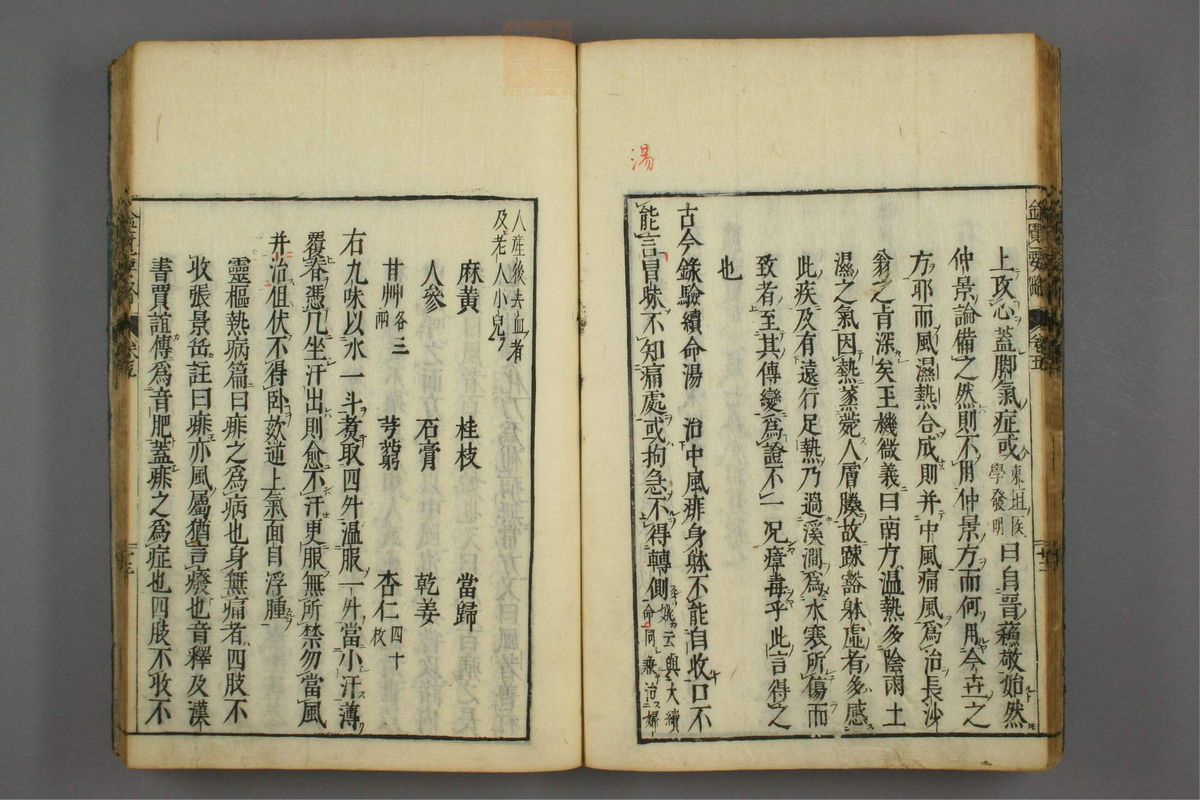 湯
金匱要略 卷五
上攻心蓋脚氣症或東垣醫學發明曰自晋蘓敬始然
仲景論備之然則不用仲景方而何用今世之
方耶而風濕熱合成則并中風痛風爲治長沙
翁之旨深矣玉機微義曰南方温熱多陰雨土
濕之氣因熱蒸蒸人層腠故踈豁躰虚者多感
此疾及有遠行足熱乃過溪澗爲水寒所傷而
致者至其傳變爲證不一况瘴毒乎此言得之
也
古今錄驗續命湯 治中風痱身躰不能自收口不
能言冒昧不知痛處或拘急不得轉側姚云與大續命同兼治婦
人産後去血者及老人小兒
麻黄 桂枝 當歸
人參 石膏 乾姜
甘艸各三兩 芎藭 杏仁四十枚
右九味以水一斗煮取四升温服一升當小汗薄
覆脊憑几坐汗出則愈不汗更服無所禁勿當風
并治但伏不得卧欬逆上氣面目浮腫
靈樞熱病篇曰痱之爲病也身無痛者四肢不
收張景岳註曰痱亦風屬猶言癈也音釋及漢
書賈誼傳爲音肥蓋痱之爲症也四肢不收不